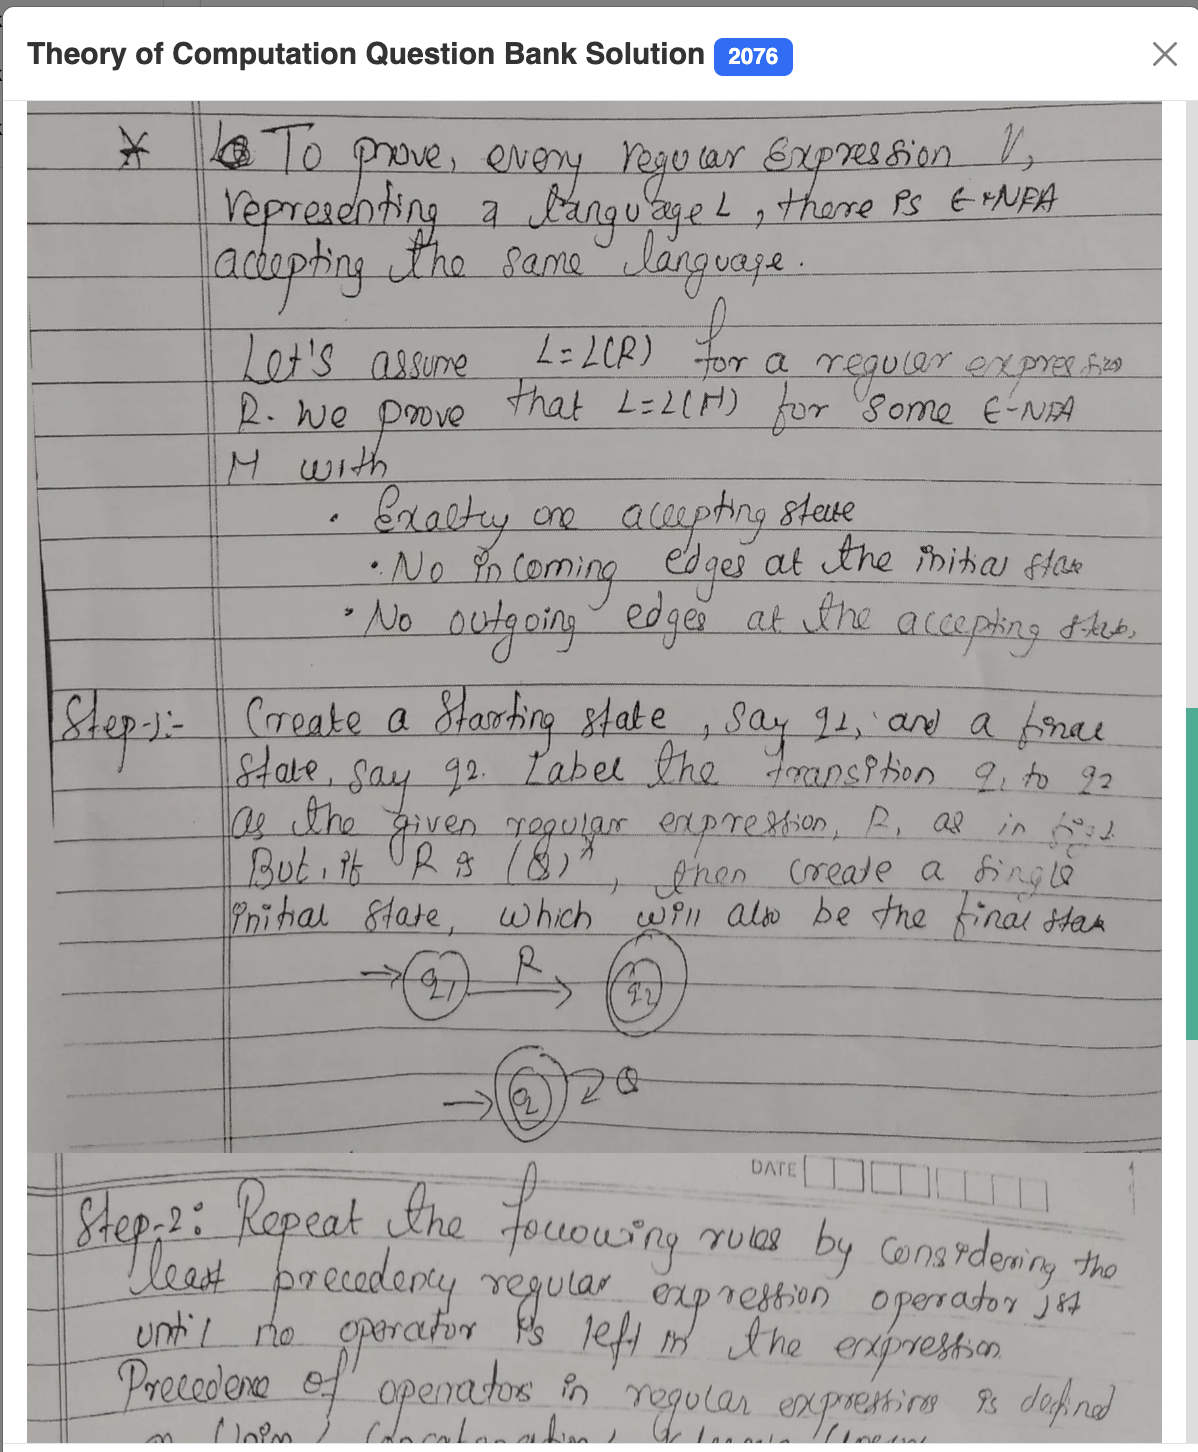 Theory of Computation Question Bank Solution 2076
To prove, every regular Expression r,
representing a language L, there is ε-NFA
accepting the same language.
Let's assume L=L(R) for a regular expression
R. We prove that L=L(M) for some ε-NFA
M with
• Exaltry one accepting state
• No incoming edges at the initial state
• No outgoing edges at the accepting state.
Step-1:- Create a Starting state, say q1, and a final
State, say q2. Label the transition q1 to q2
as the given regular expression, R, as in fig 1.
But, if R is (Q)*, then create a single
initial state, which will also be the final state
q1 R q2
q Q
DATE
Step-2: Repeat the following rules by considering the
least precedency regular expression operator 1st
until no operator is left in the expression.
Precedence of operators in regular expressions is defined
as Union, Concatenation,